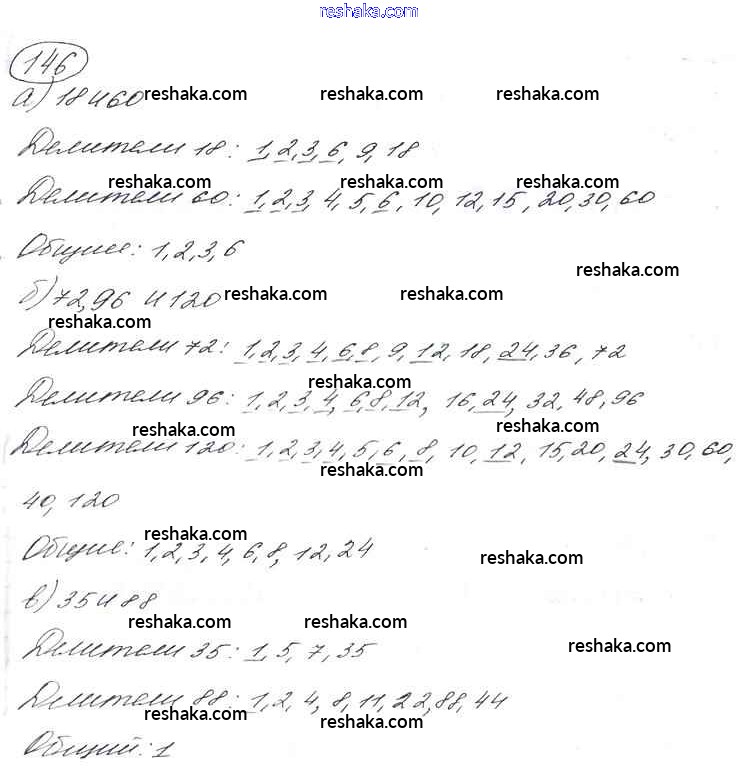 reshaka.com
146
а) 18 и 60 reshaka.com reshaka.com reshaka.com
Делители 18: 1, 2, 3, 6, 9, 18
reshaka.com reshaka.com reshaka.com
Делители 60: 1, 2, 3, 4, 5, 6, 10, 12, 15, 20, 30, 60
Общие: 1, 2, 3, 6
reshaka.com
б) 72, 96 и 120 reshaka.com reshaka.com
reshaka.com
Делители 72: 1, 2, 3, 4, 6, 8, 9, 12, 18, 24, 36, 72
reshaka.com
Делители 96: 1, 2, 3, 4, 6, 8, 12, 16, 24, 32, 48, 96
reshaka.com reshaka.com
Делители 120: 1, 2, 3, 4, 5, 6, 8, 10, 12, 15, 20, 24, 30, 60,
reshaka.com
40, 120
reshaka.com
Общие: 1, 2, 3, 4, 6, 8, 12, 24
reshaka.com
в) 35 и 88
reshaka.com reshaka.com
Делители 35: 1, 5, 7, 35
reshaka.com
Делители 88: 1, 2, 4, 8, 11, 22, 88, 44
reshaka.com reshaka.com
Общий: 1